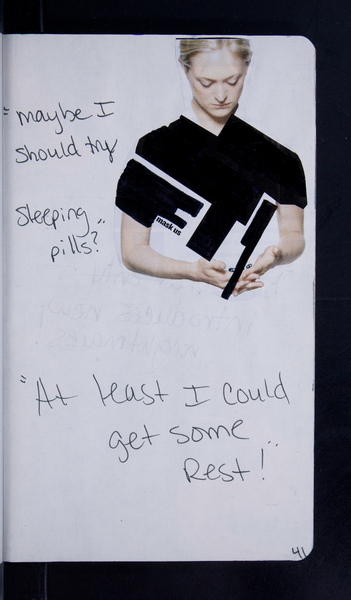 "maybe I
should try
sleeping
pills?"
mask us
"At least I could
get some
Rest!"
41